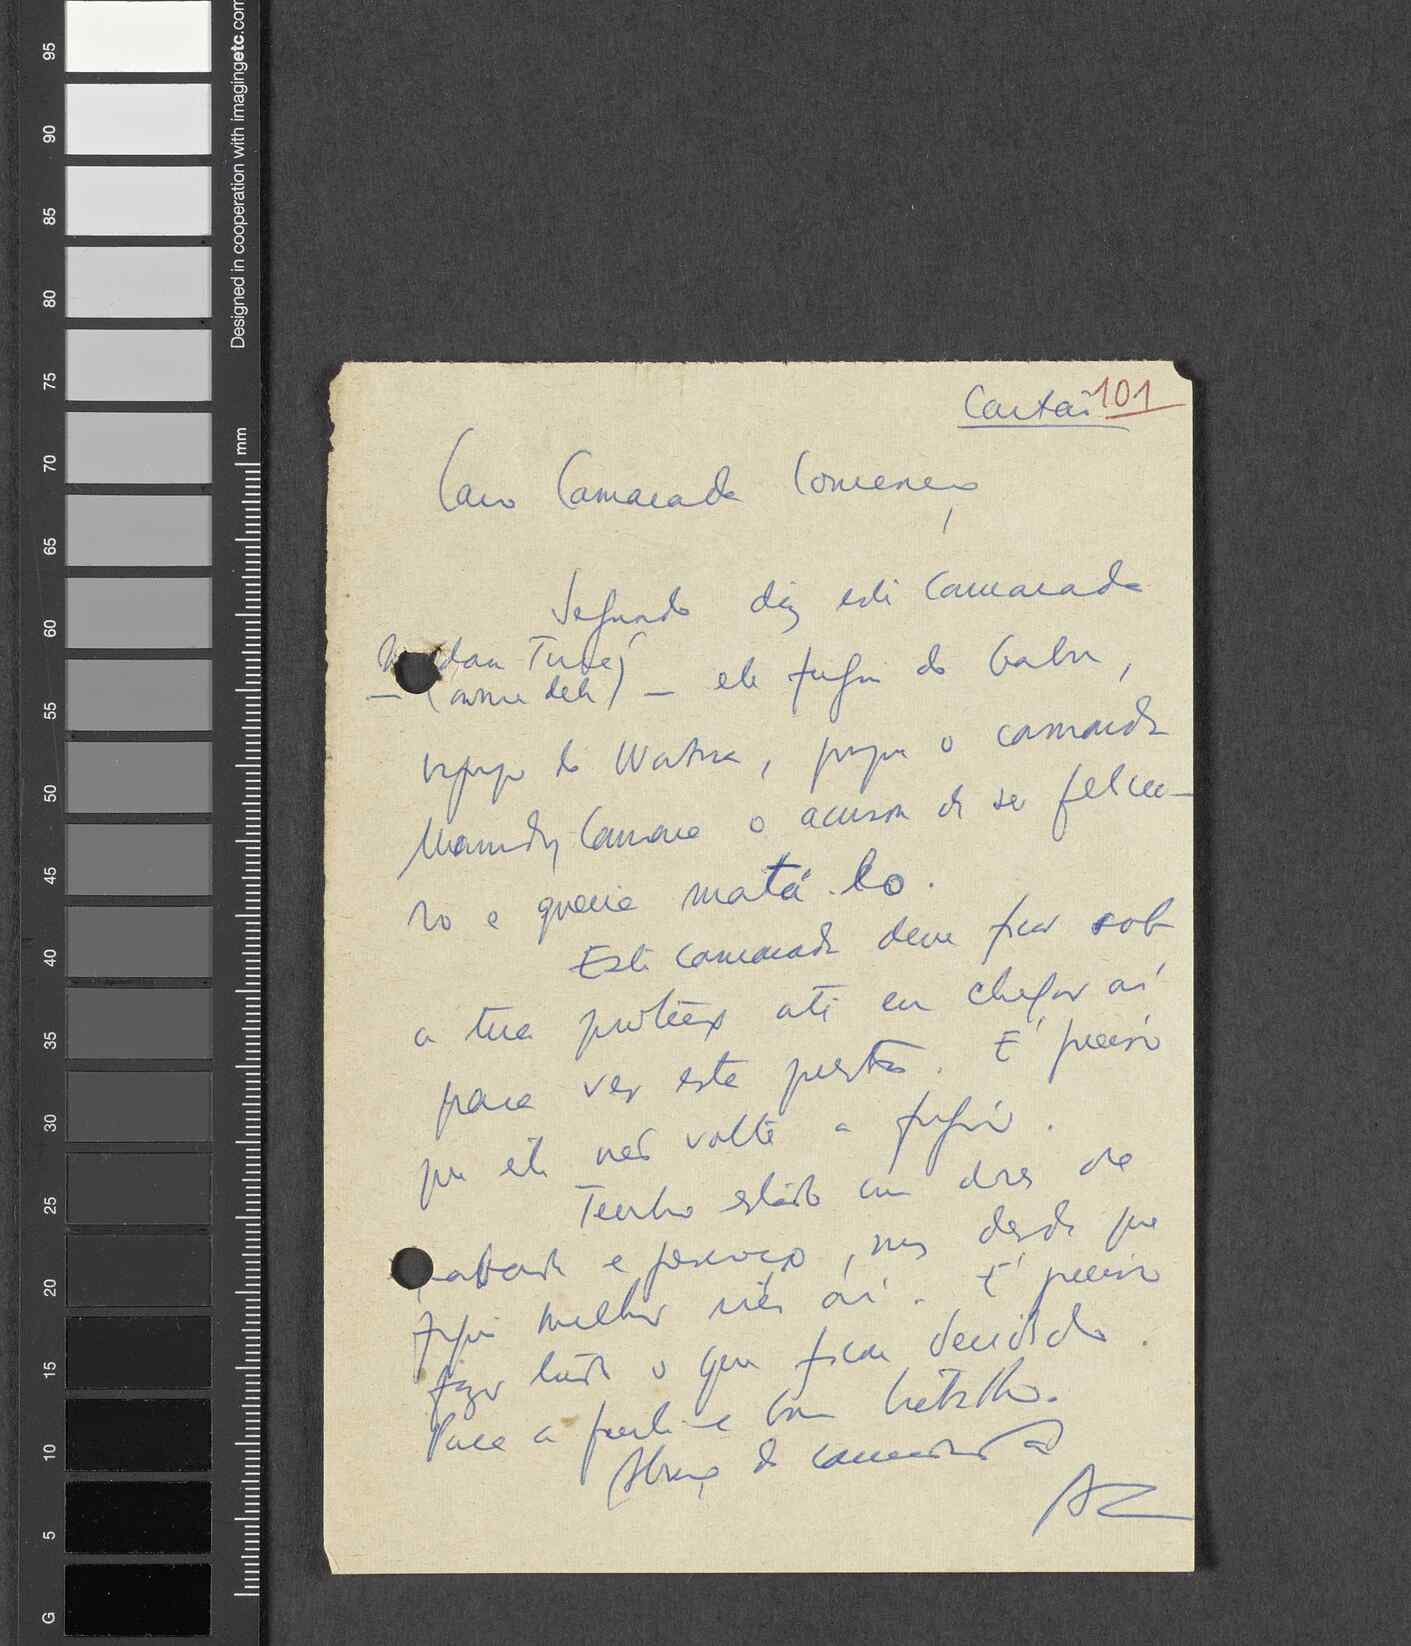 95
90
85
80
75
70
65
60
55
50
45
40
35
30
25
20
15
10
5
G
Designed in cooperation with imagingetc.com
mm
Cartas 101
Caro Camarada
Segundo diz este Camarada
dan Turé
— (nome dele) — ele fugiu do Gabu,
do porque o camarada
Mamady Camara o acusou de ser felcu-
no e queria matá-lo.
Este camarada deve ficar sob
a tua protecção até eu chegar aí
para ver esta questão. É preciso
que ele não volte a fugir.
Tenho estado com dores de
e pescoço, mas desde que
fique melhor irei aí. É preciso
fazer tudo o que ficou decidido.
Para a frente e bom trabalho.
Abraço do camarada